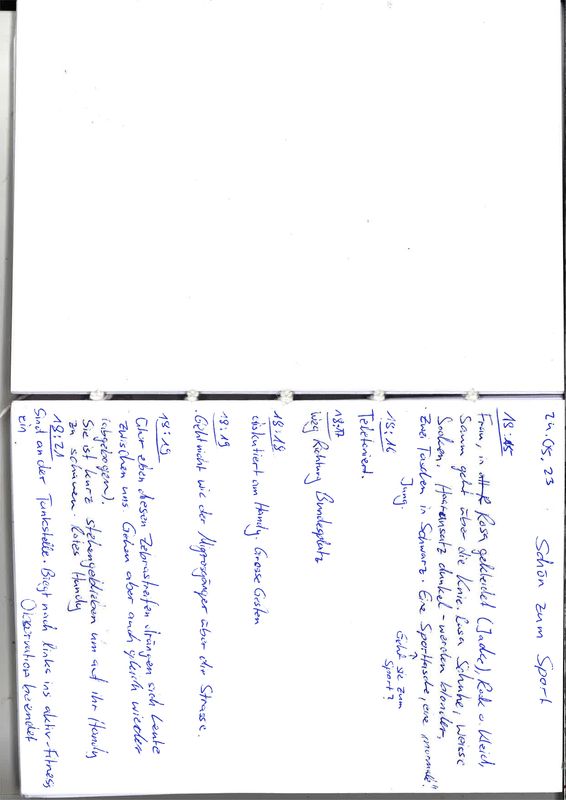 24.05.23 Schön zum Sport
18:15
Frau, in Rosa gekleidet (Jacke), Rock o. Kleid
Saum geht über die Knie. Rosa Schuhe, weisse
Socken. Haaransatz dunkel - werden blonder.
Zwei Taschen in Schwarz. Eine Sporttasche, eine "normale".
Jung.
↑ Geht sie zum
Sport?
18:16
Telefoniert.
18:17
Weg Richtung Bundesplatz
18:18
diskutiert am Handy. Grosse Gesten
18:19
Geht nicht wie der Migrosgänger über die Strasse.
18:19
Über eben diesen Zebrastreifen drängen sich Leute
zwischen uns. Gehen aber auch gleich wieder
(abgebogen).
Sie ist kurz stehengeblieben um auf ihr Handy
zu schauen. Rotes Handy
18:21
Sind an der Tankstelle. Biegt nach links ins aktiv-Fitness
ein. Observation beendet